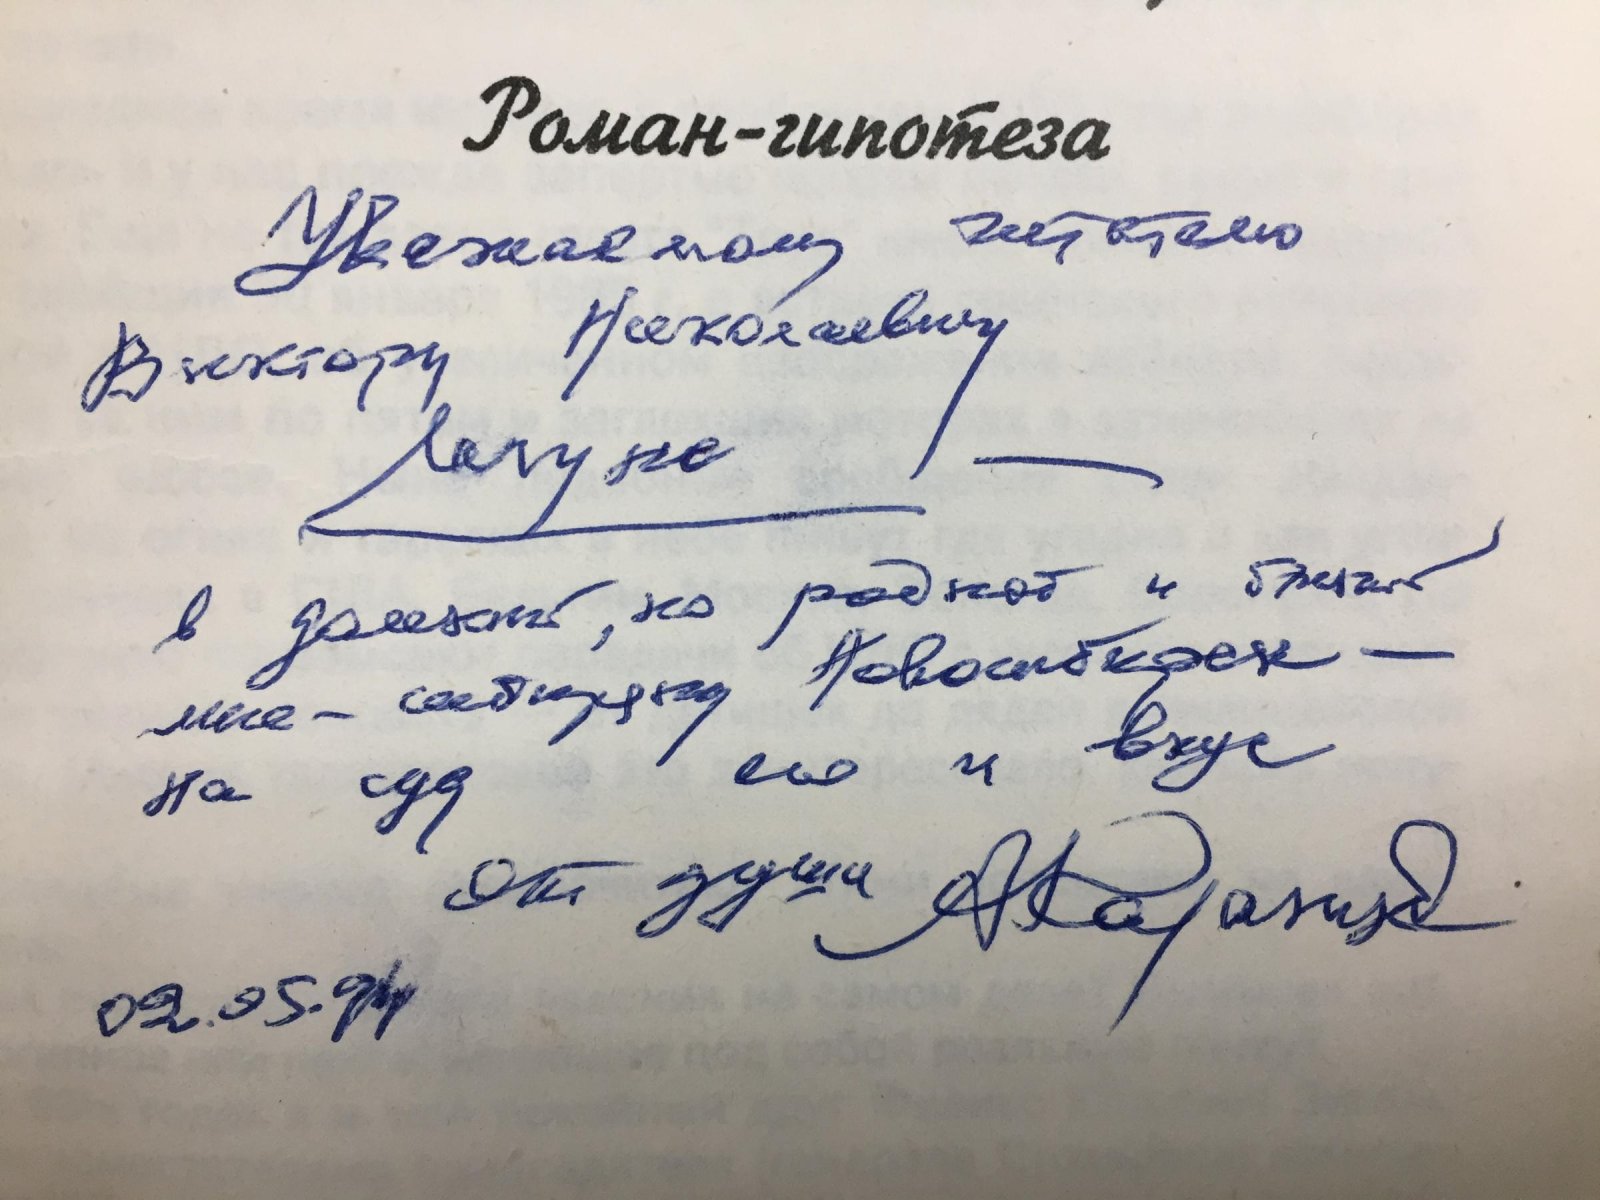 Роман-гипотеза
Уважаемому читателю
Виктору Николаевичу
Лагуне —
в далекий, но родной и близкий
мне - сибиряку Новосибирск —
на суд его и вкус
От души
02.05.94